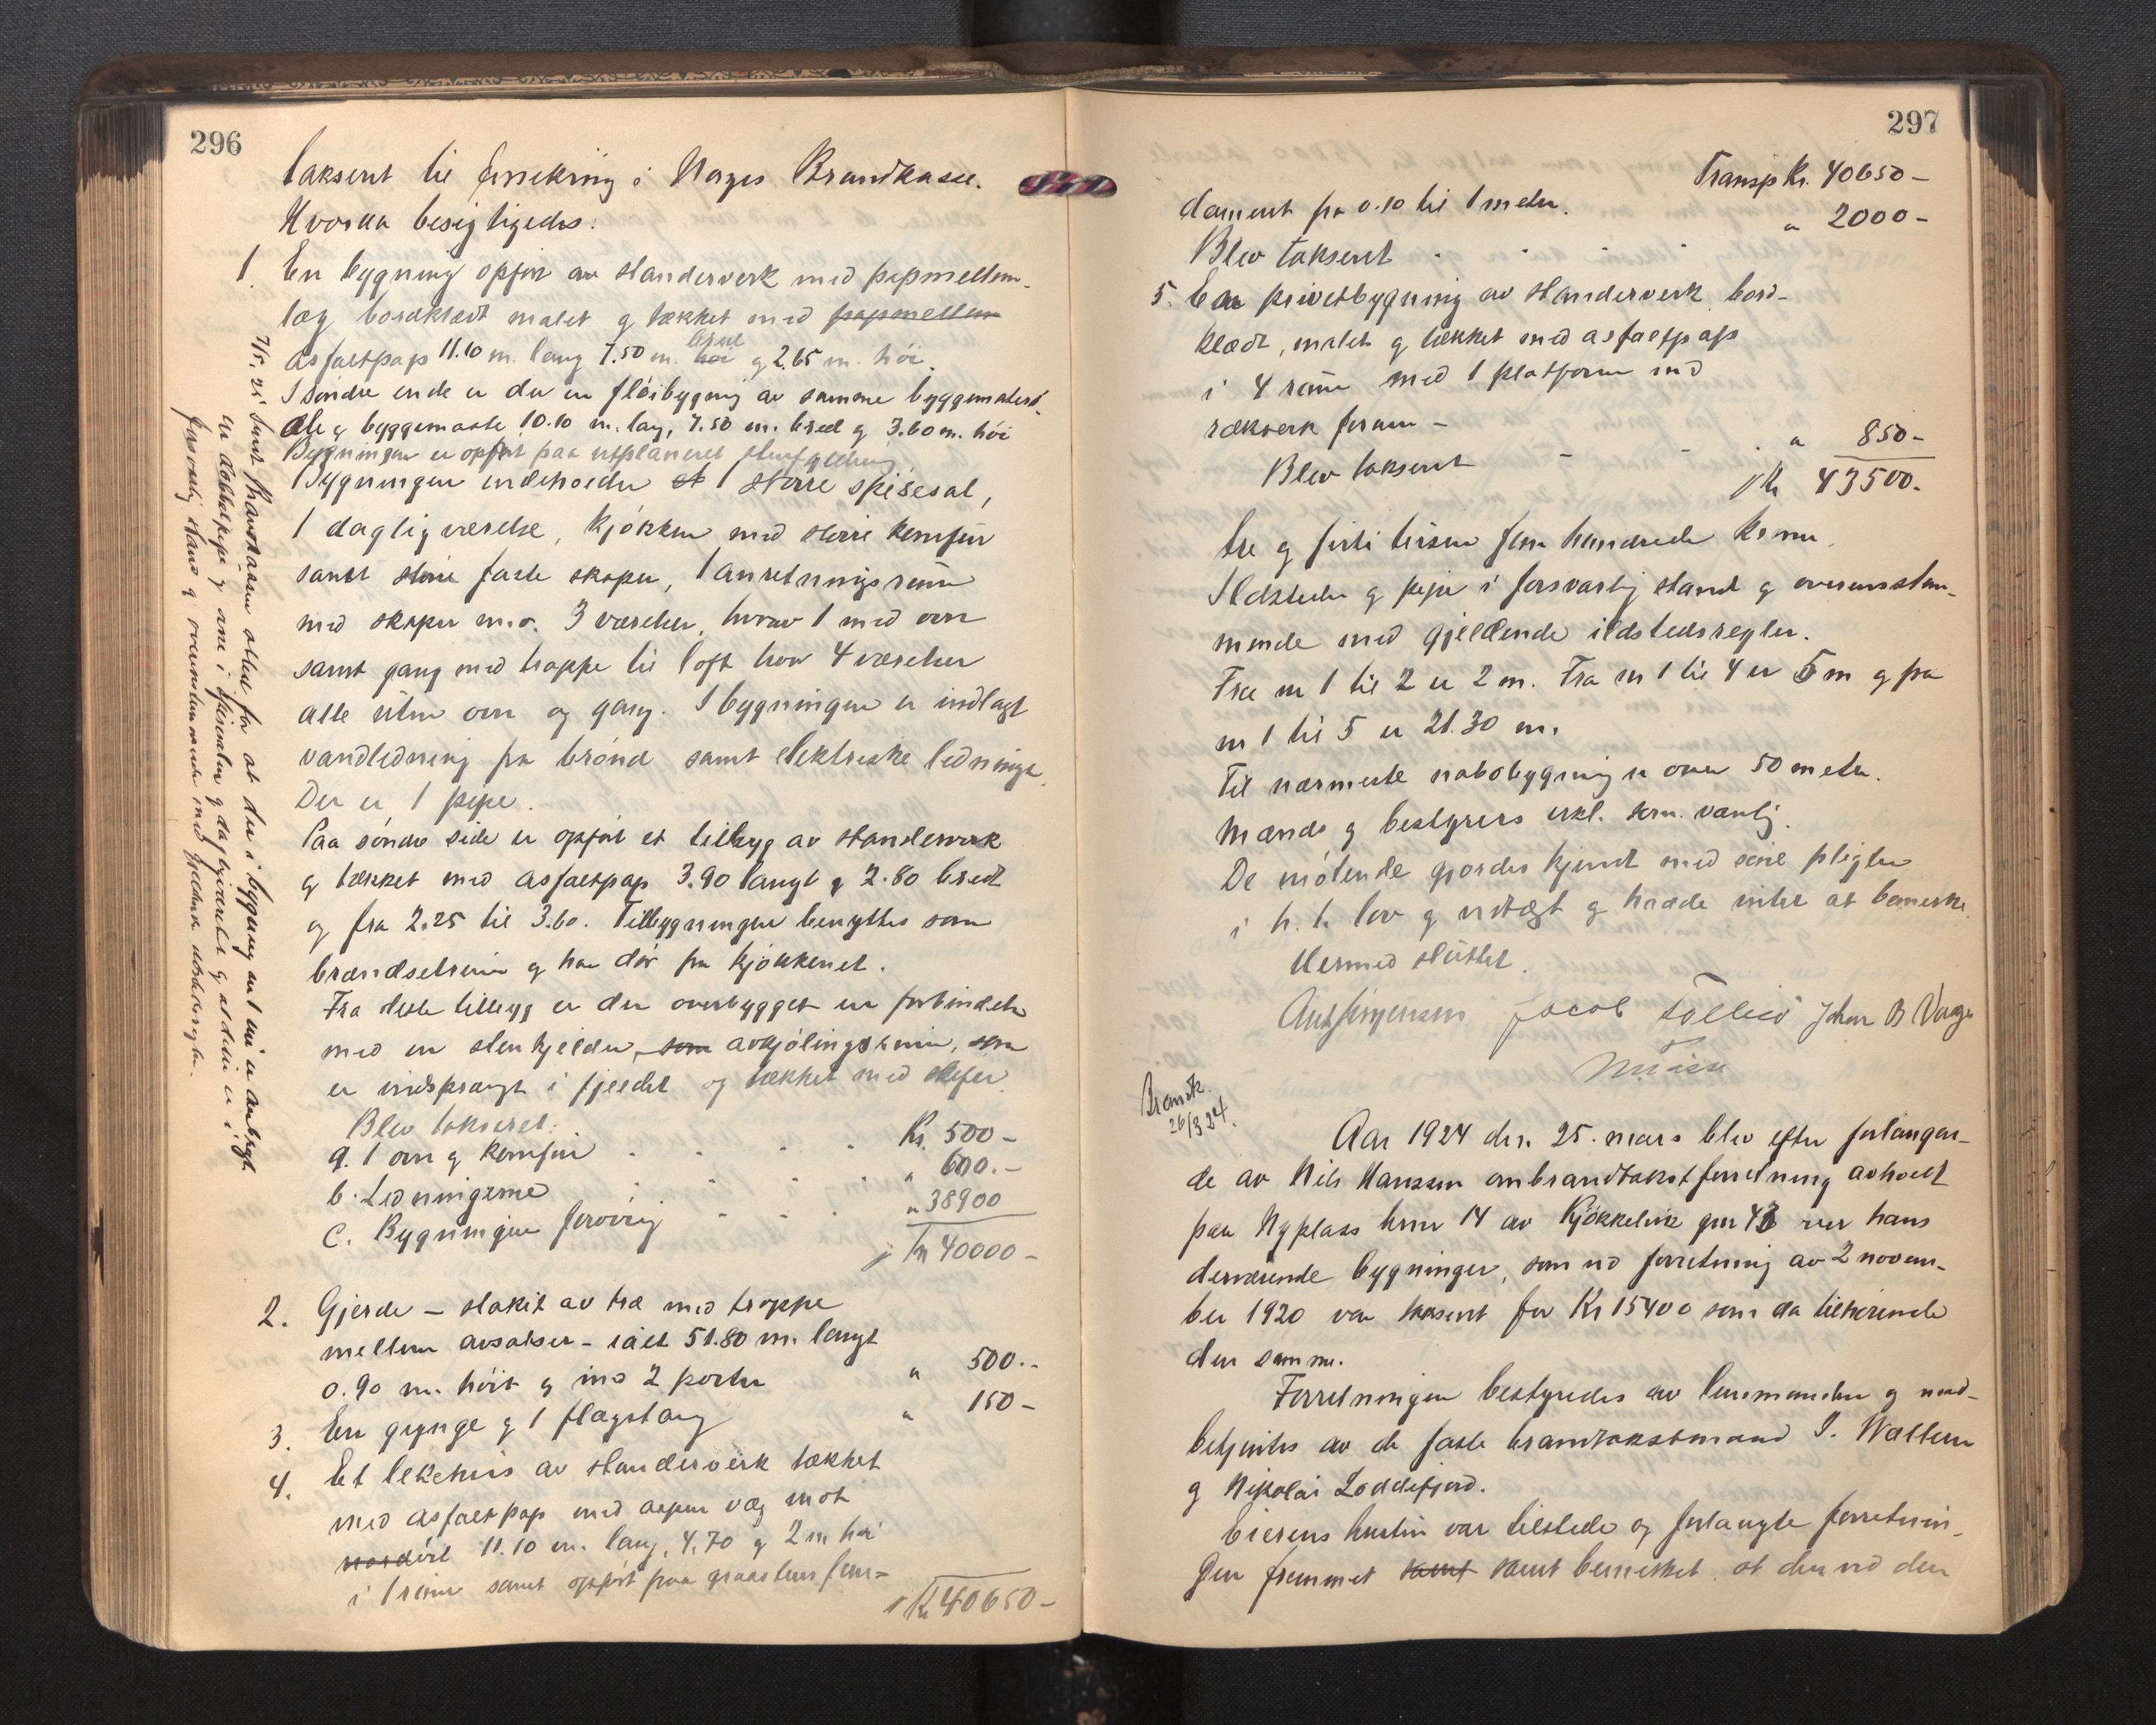 296
taksert til forsikring i Norges Brandkasse.
Hvorda besigtigedes:
1. En bygning opført av standerverk med papmellem-
læg bordklædt malet og tækket med papmellem
asfaltpap 11.10 m. lang 7.50 m. høi bred og 2.65 m. høi.
I søndre ende er der en fløibygning av samme byggemateri-
ale og byggemaate 10.10 m. lang, 7.50 m. bred og 3.60 m. høi
Bygningen er opført paa utplaneret
Bygningen indeholder et 1 større spisesal,
1 dagligværelse, kjøkken med større komfur
samt større faste skaper, 1 anretningsrum
med skaper m.v. 3 værelser, hvorav 1 med ovn
samt gang med trappe til loft hvor 4 værelser
alle uten ovn og gang. I bygningen er indlagt
vandledning fra brønd samt elektriske ledninger.
Der er 1 pipe.
Paa søndre side er opført et tilbyg av standerverk
og tækket med asfaltpap 3.90 langt og 2.80 bredt
og fra 2.25 til 3.60. Tilbygningen benyttes som
brændselsrum og har dør fra kjøkkenet.
Fra dette tilbygg er der overbygget en forbindelse
med en stenkjelder, som avkjølingsrum, som
er indsprængt i fjeldet og tækket med skifer
Blev taksert:
a. 1 ovn og komfur Kr. 500 -
b. Ledningerne " 600. -
c. Bygningen forøvrig " 38900
Kr 40000 -
2. Gjerde - stakit av træ med trappe
mellem avsatser - ialt 51.80 m. langt
0.90 m. høit og med 2 porter " 500. -
3. En gynge og 1 flagstang " 150 -
4. Et lekehus av standerverk tækket
med asfaltpap med aapen væg mot
11.10 m. lang, 4.70 og 2 m høi
i 1 rum samt opført paa graastens fun-
Kr 40650 -
7/5. 25 Norges Brandkasse at der i bygning nr 1 nu er anbragt
en dobbelpipe og ovne i spisesalen og dagligværelset og at disse er i
forsvarlig stand og overensstemmende med gjeldende ildstedsregler.
297
Transp Kr. 40650 -
dament fra 0.10 til 1 meter.
Blev taksert " 2000 -
5. En privetbygning av standerverk, bord-
klædt, malet og tækket med asfaltpap
i 4 rum med 1 platform med
rækverk foran -
Blev taksert " 850 -
Kr 43500 -
tre og firti tusen fem hundrede kroner.
Ildsteder og pipe i forsvarlig stand og overensstem-
mende med gjeldende ildstedsregler.
Fra nr 1 til 2 er 2 m. Fra nr 1 til 4 er 5 m og fra
nr 1 til 5 er 21.30 m.
Til nærmeste nabobygning er over 50 meter.
Mænds og bestyrers erkl. som vanlig.
De møtende gjordes kjendt med sine pligter
i h. t. lov og vedtægt og hadde intet at bemerke.
Hermed sluttet.
Ant Jørgensen Jacob Johan B
Brandk.
26/3 24.
Aar 1924 den 25. mars blev efter forlangen-
de av Nils Hanssen ombrandtakstforretning avholdt
paa Nyplass brnr 14 av Kjøkkelvik gnr 43 over hans
derværende bygninger, som ved forretning av 2 novem-
ber 1920 var taksert for Kr 15400 som da tilhørende
den samme.
Forretningen bestyredes av lensmanden og med-
betjentes av de faste brandtakstmænd I. Wallem
og Nikolai Loddefjord.
Eierens hustru var tilstede og forlangte forretnin-
gen fremmet samt samt bemerket, at der ved den